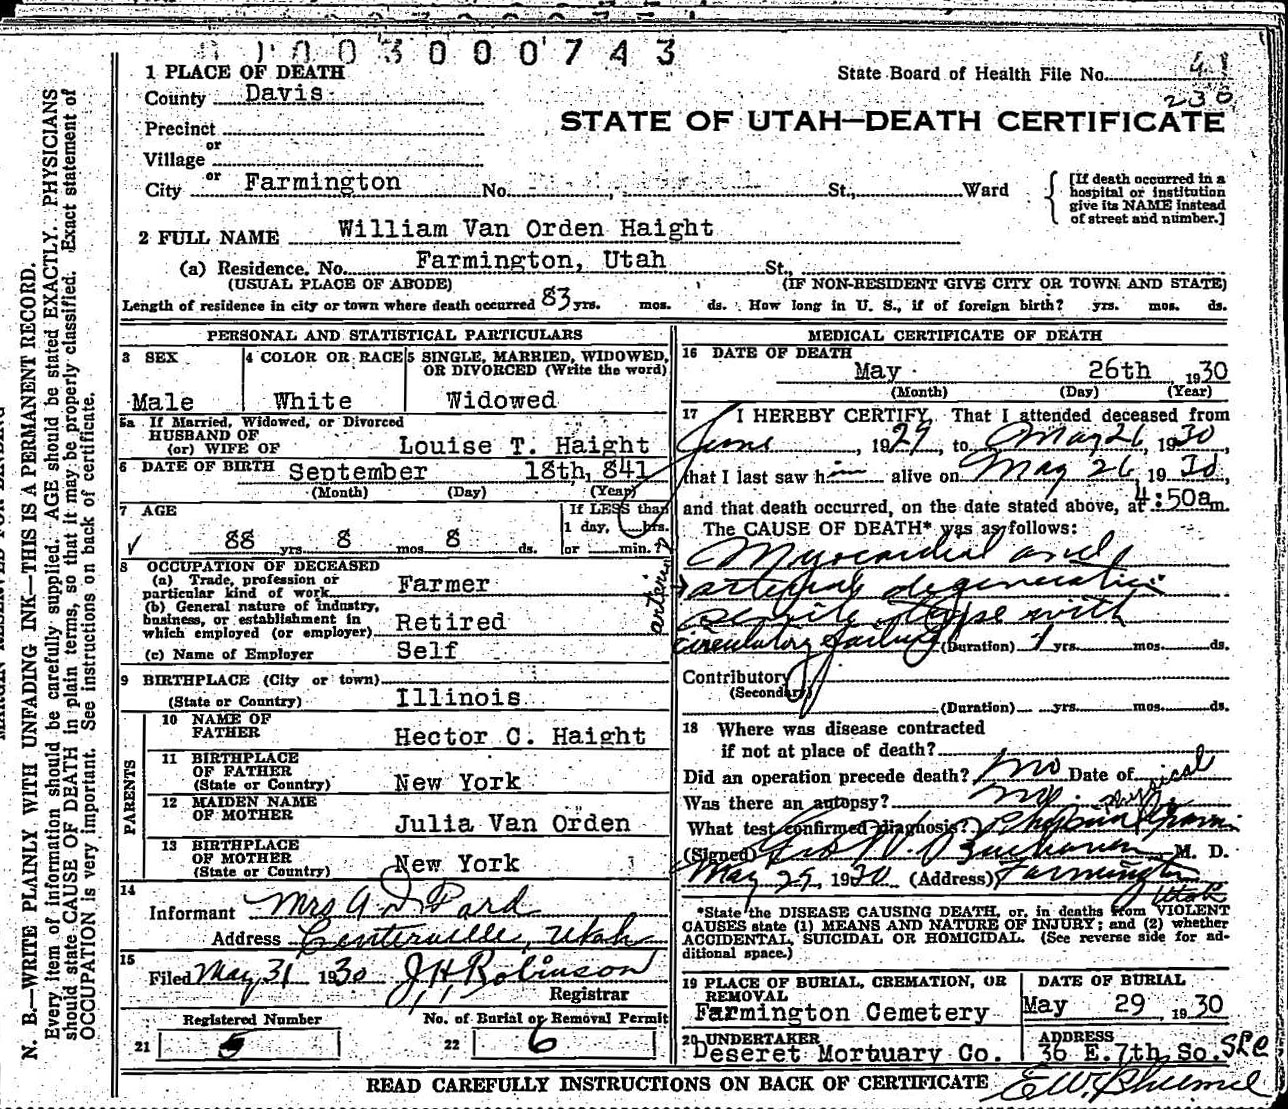 0 1 0 0 3 0 0 0 7 4 3
1 PLACE OF DEATH
State Board of Health File No. 41
230
County Davis
STATE OF UTAH—DEATH CERTIFICATE
Precinct
or
Village
or
City Farmington No. St., Ward
[If death occurred in a
hospital or institution
give its NAME instead
of street and number.]
2 FULL NAME William Van Orden Haight
(a) Residence. No. Farmington, Utah St.,
(USUAL PLACE OF ABODE) (IF NON-RESIDENT GIVE CITY OR TOWN AND STATE)
Length of residence in city or town where death occurred 83 yrs. mos. ds. How long in U. S., if of foreign birth? yrs. mos. ds.
PERSONAL AND STATISTICAL PARTICULARS
3 SEX
4 COLOR OR RACE
5 SINGLE, MARRIED, WIDOWED,
OR DIVORCED (Write the word)
Male White Widowed
5a If Married, Widowed, or Divorced
HUSBAND OF
(or) WIFE OF Louise T. Haight
6 DATE OF BIRTH September 18th, 841
(Month) (Day) (Year)
7 AGE
88 yrs. 8 mos. 8 ds.
If LESS than
1 day, hrs.
or min.?
8 OCCUPATION OF DECEASED
(a) Trade, profession or
particular kind of work Farmer
(b) General nature of industry,
business, or establishment in
which employed (or employer) Retired
(c) Name of Employer Self
9 BIRTHPLACE (City or town)
(State or Country) Illinois
PARENTS
10 NAME OF
FATHER Hector C. Haight
11 BIRTHPLACE
OF FATHER
(State or Country) New York
12 MAIDEN NAME
OF MOTHER Julia Van Orden
13 BIRTHPLACE
OF MOTHER
(State or Country) New York
14
Informant Mrs A D Pard
Address Centerville, Utah
15
Filed May 31 1930 J.H. Robinson
Registrar
Registered Number
21 5
No. of Burial or Removal Permit
22 6
MEDICAL CERTIFICATE OF DEATH
16 DATE OF DEATH
May 26th 1930
(Month) (Day) (Year)
17 I HEREBY CERTIFY, That I attended deceased from
June, 1929, to May 26, 1930
that I last saw him alive on May 26 1930,
and that death occurred, on the date stated above, at 4:50a m.
The CAUSE OF DEATH* was as follows:
Myocardial and
arterial degeneration
senile type with
circulatory failure (Duration) 1 yrs. mos. ds.
Contributory
(Secondary)
(Duration) yrs. mos. ds.
18 Where was disease contracted
if not at place of death?
Did an operation precede death? no Date of
Was there an autopsy? no. physical
What test confirmed diagnosis?
(Signed) Geo W. Buchanan M. D.
May 29, 1930 (Address) Farmington
Utah
*State the DISEASE CAUSING DEATH, or, in deaths from VIOLENT
CAUSES state (1) MEANS AND NATURE OF INJURY; and (2) whether
ACCIDENTAL, SUICIDAL OR HOMICIDAL. (See reverse side for ad-
ditional space.)
19 PLACE OF BURIAL, CREMATION, OR
REMOVAL
Farmington Cemetery
DATE OF BURIAL
May 29 1930
20 UNDERTAKER
Deseret Mortuary Co.
ADDRESS
36 E. 7th So. SLC
READ CAREFULLY INSTRUCTIONS ON BACK OF CERTIFICATE
N. B.—WRITE PLAINLY WITH UNFADING INK—THIS IS A PERMANENT RECORD.
Every item of information should be carefully supplied. AGE should be stated EXACTLY. PHYSICIANS
should state CAUSE OF DEATH in plain terms, so that it may be properly classified. Exact statement of
OCCUPATION is very important. See instructions on back of certificate.